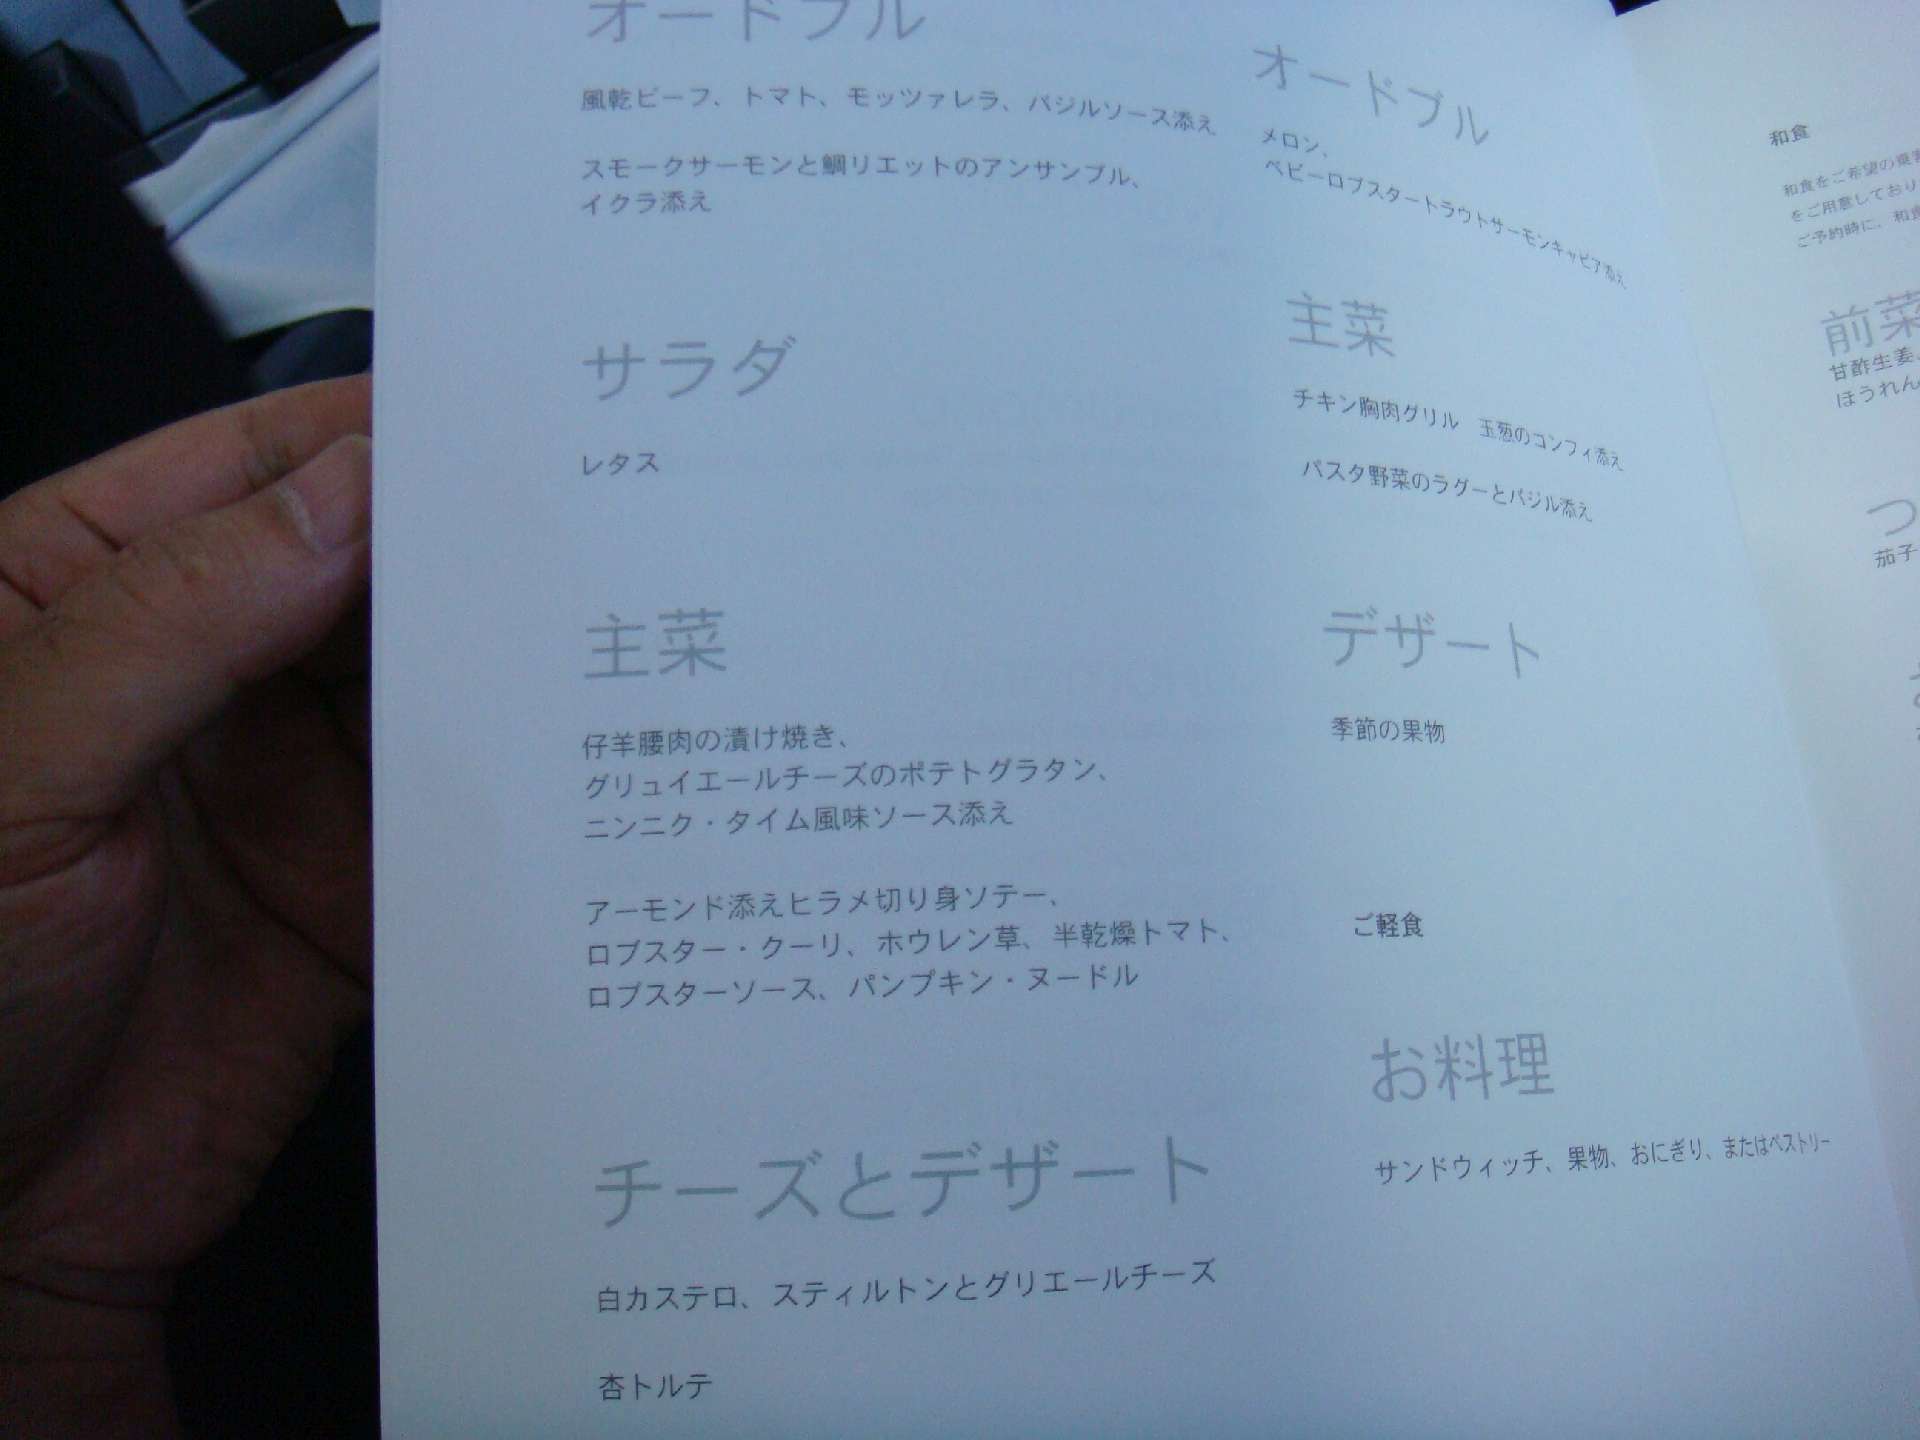 オードブル
風乾ビーフ、トマト、モッツァレラ、バジルソース添え
スモークサーモンと鯛リエットのアンサンブル、
イクラ添え
サラダ
レタス
主菜
仔羊腰肉の漬け焼き、
グリュイエールチーズのポテトグラタン、
ニンニク・タイム風味ソース添え
アーモンド添えヒラメ切り身ソテー、
ロブスター・クーリ、ホウレン草、半乾燥トマト、
ロブスターソース、パンプキン・ヌードル
チーズとデザート
白カステロ、スティルトンとグリエールチーズ
杏トルテ
オードブル
メロン、
ベビーロブスタートラウトサーモンキャビア添え
主菜
チキン胸肉グリル　玉葱のコンフィ添え
パスタ野菜のラグーとバジル添え
デザート
季節の果物
ご軽食
お料理
サンドウィッチ、果物、おにぎり、またはペストリー
和食
和食をご希望の乗客
をご用意しており
ご予約時に、和食
前菜
甘酢生姜、
ほうれん
つ
茄子